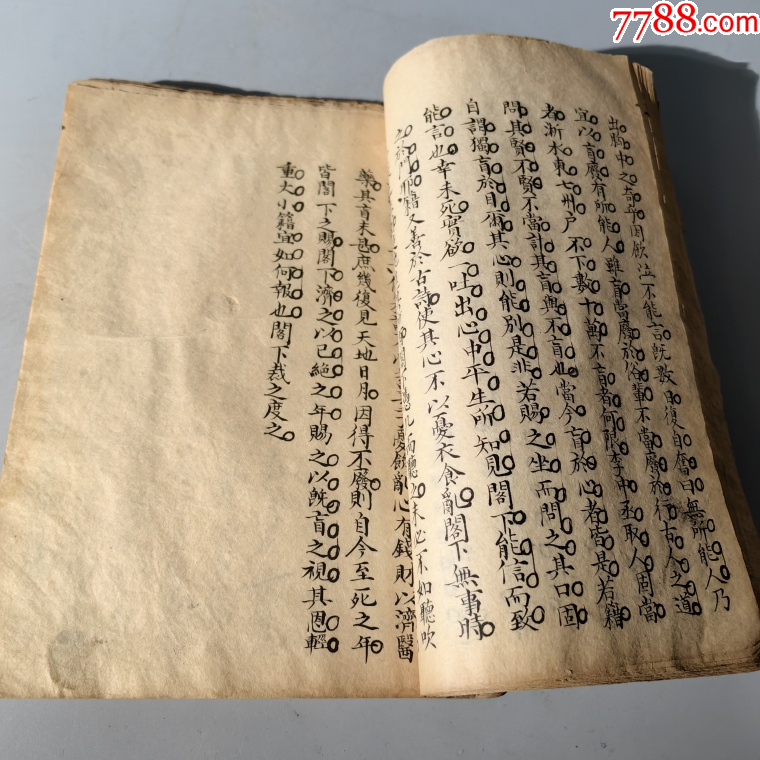 出胸中之奇乎因飲泣不能言既數日復自奮曰無所能人乃
宜以盲廢有所能人雖盲當廢於俗輩不當廢於行古人之道
者浙水東七州户不下數十萬不盲者何限李中丞取人固當
問其賢不賢不當計其盲與不盲也當今盲於心者皆是若籍
自謂獨盲於目爾其心則能別是非若賜之坐而問之其口固
能言也幸未死實欲一吐出心中平生所知見閣下能信而致
之於門耶籍又善於古詩使其心不以憂衣食亂閣下無事時
而聽之未必不如聽吹
亂心有錢財以濟醫
藥其盲未甚庶幾復見天地日月因得不廢則自今至死之年
皆閣下之賜閣下濟之以已絕之年賜之以既盲之視其恩輕
重大小籍宜如何報也閣下裁之度之
7788.com